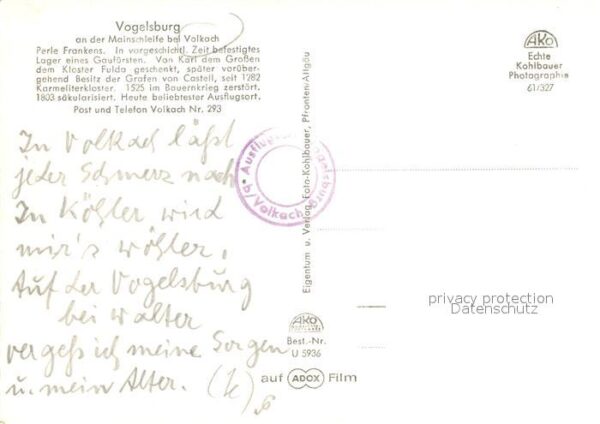 Vogelsburg
an der Mainschleife bei Volkach
Perle Frankens. In vorgeschichtl. Zeit befestigtes
Lager eines Gaufürsten. Von Karl dem Großen
dem Kloster Fulda geschenkt, später vorüber-
gehend Besitz der Grafen von Castell, seit 1282
Karmeliterkloster. 1525 im Bauernkrieg zerstört.
1803 säkularisiert. Heute beliebtester Ausflugsort.
Post und Telefon Volkach Nr. 293
In Volkach läßt
jeder Schmerz nach
In Köhler wird
mir's wöhler,
Auf der Vogelsburg
bei Walter
vergeß ich meine Sorgen
u. mein Alter.
Ausflugsort Vogelsburg
b/Volkach
Eigentum u. Verlag Foto-Kohlbauer, Pfronten-Allgäu
AKO
Echte
Kohlbauer
Photographie
61/327
AKO
Best.-Nr.
U 5936
auf ADOX Film
privacy protection
Datenschutz